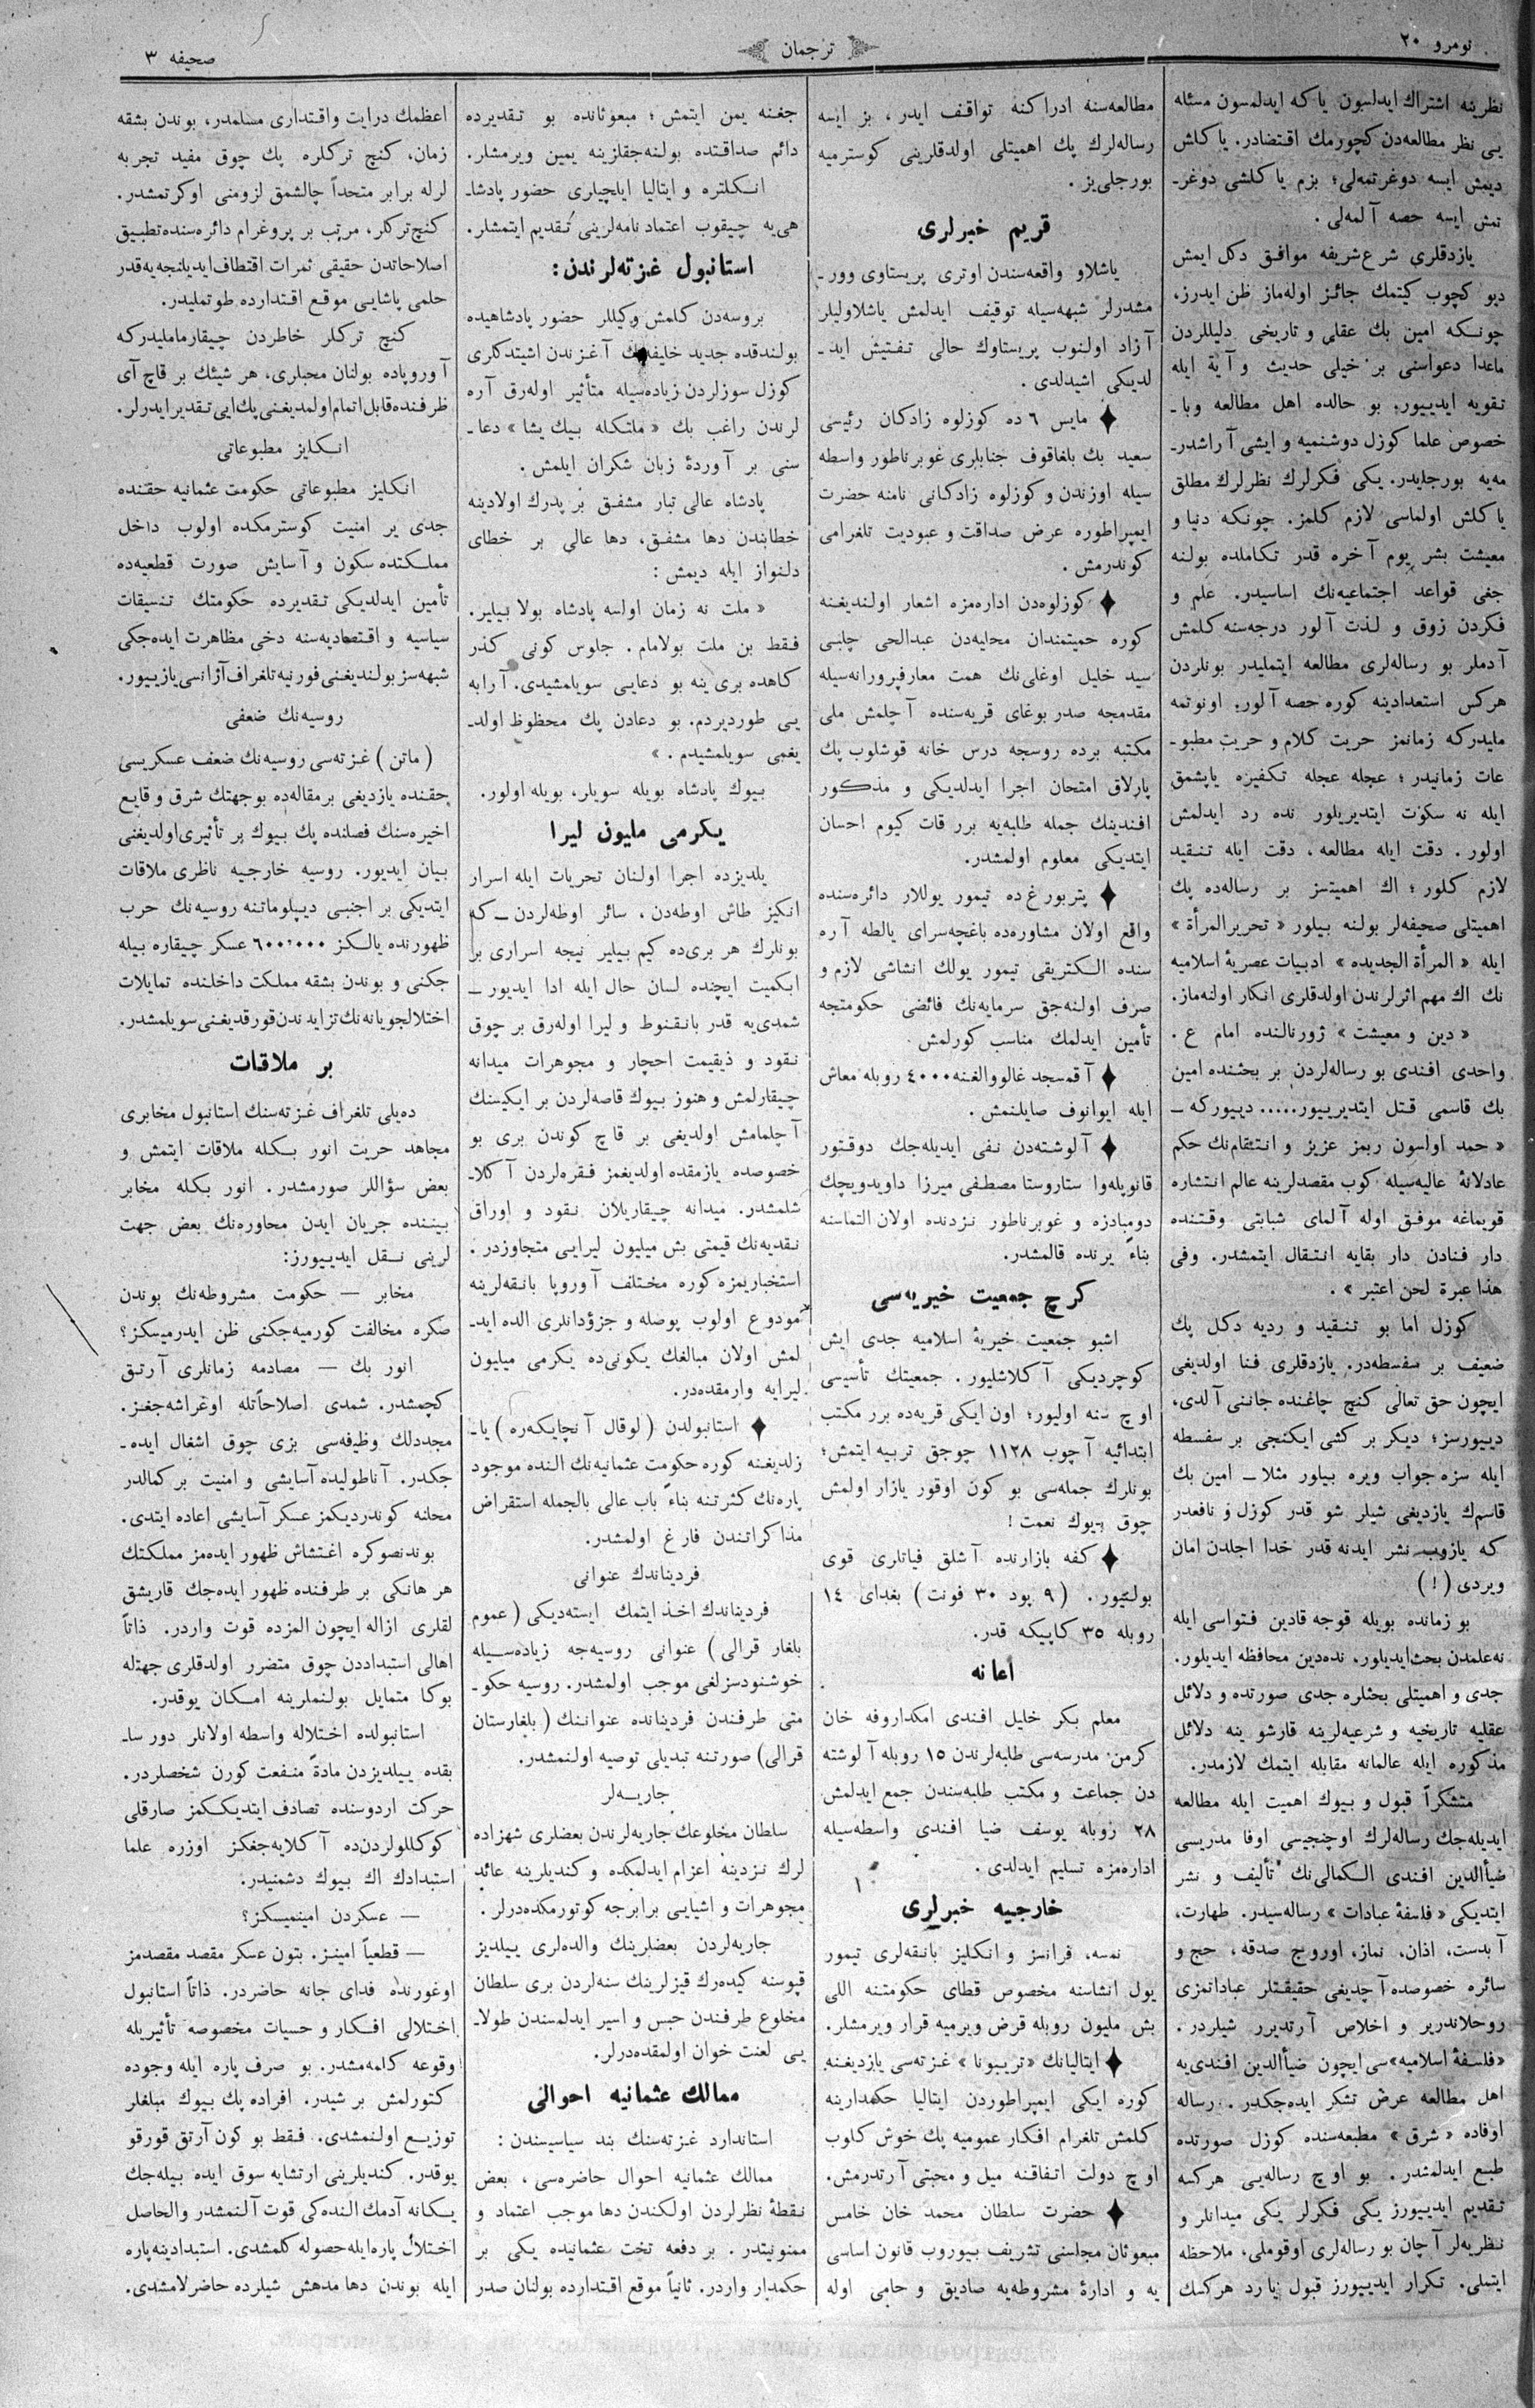 نومرو ٢٠
ترجمان
صحيفه ٣
نظرينه اشتراك ايدلسون ياكه ايدلمسون مسئله
يى نظر مطالعه‌دن كچورمك اقتضادر. ياكلش
ديمش ايسه دوغرتمه‌لى؛ بزم ياكلشى دوغر‌ـ
تمش ايسه حصه آلمه‌لى .
يازدقلرى شرع شريفه موافق دكل ايمش
ديو كچوب كيتمك جائز اوله‌ماز ظن ايدرز،
چونكه امين بك عقلى و تاريخى دليللردن
ماعدا دعواسنى بر خيلى حديث و آية ايله
تقويه ايدييور. بو حالده اهل مطالعه وباـ
خصوص علما كوزل دوشنميه و ايشى آراشدرـ
مه‌يه بورجليدر. يكى فكرلرك نظرلرك مطلق
ياكلش اولماسى لازم كلمز. چونكه دنيا و
معيشت بشر يوم آخره قدر تكاملده بولنه
جغى قواعد اجتماعيه‌نك اساسيدر. علم و
فكردن زوق و لذت آلور درجه‌سنه كلمش
آدملر بو رساله‌لرى مطالعه ايتمليدر بونلردن
هركس استعدادينه كوره حصه آلور. اونوتمه
مليدركه زمانمز حريت كلام و حريت مطبوـ
عات زمانيدر؛ عجله عجله تكفيره ياپشمق
ايله نه سكوت ايتديريلور نده رد ايدلمش
اولور . دقت ايله مطالعه، دقت ايله تنقيد
لازم كلور؛ اك اهميتسز بر رساله‌ده پك
اهميتلى صحيفه‌لر بولنه بيلور « تحرير المرأة »
ايله « المرأة الجديده » ادبيات عصريهٔ اسلاميه
نك اك مهم اثرلرندن اولدقلرى انكار اولنه‌ماز.
« دين و معيشت » ژورنالنده امام ع .
واحدى افندى بو رساله‌لردن بر بحثنده امين
بك قاسمى قتل ايتديرييور..... دييوركه ــ
« حمد اولسون ربمز عزيز و انتقام‌نك حكم
عادلانهٔ عاليه‌سيله كوب مقصدلرينه عالم انتشاره
قويماغه موفق اوله آلماى شبابتى وقتنده
دار فنادن دار بقايه انتقال ايتمشدر. وفى
هذا عبرة لحن اعتبر » .
كوزل اما بو تنقيد و رديه دكل پك
ضعيف بر سفسطه‌در. يازدقلرى فنا اولديغى
ايچون حق تعالى كنج چاغنده جاننى آلدى،
دييورسز؛ ديكر بر كشى ايكنجى بر سفسطه
ايله سزه جواب ويره بياور مثلا ــ امين بك
قاسم‌ك يازديغى شيلر شو قدر كوزل و نافعدر
كه يازوب نشر ايدنه قدر خدا اجلدن امان
ويردى (!)
بو زمانده بويله قوجه قادين فتواسى ايله
نه‌علمدن بحث‌ايديلور، نده‌دين محافظه ايديلور.
جدى و اهميتلى بحثلره جدى صورتده و دلائل
عقليه تاريخيه و شرعيه‌لرينه قارشو ينه دلائل
مذكوره ايله عالمانه مقابله ايتمك لازمدر.
متشكراً قبول و بيوك اهميت ايله مطالعه
ايديله‌جك رساله‌لرك اوچنجيسى اوفا مدرسى
ضيأالدين افندى الكمالى‌نك تأليف و نشر
ايتديكى «فلسفهٔ عبادات» رساله‌سيدر. طهارت،
آبدست، اذان، نماز، اوروج صدقه، حج و
سائره خصوصده آچديغى حقيقتلر عباداتمزى
روحلاندرير و اخلاص آرتديرر شيلردر .
«فلسفهٔ اسلاميه»سى ايچون ضيأالدين افندى‌يه
اهل مطالعه عرض تشكر ايده‌جكدر . رساله
اوفاده « شرق » مطبعه‌سنده كوزل صورتده
طبع ايدلمشدر . بو اوچ رساله‌يى هركسه
تقديم ايدييورز يكى فكرلر يكى ميدانلر و
نظريه‌لر آچان بو رساله‌لرى اوقوملى، ملاحظه
ايتملى. تكرار ايدييورز قبول يا رد هركسك
مطالعه‌سنه ادراكنه تواقف ايدر، بز ايسه
رساله‌لرك پك اهميتلى اولدقلرينى كوسترميه
بورجلى‌يز .
قريم خبرلرى
ياشلاو واقعه‌سندن اوترى پريستاوى وورـ
مشدرلر شبهه‌سيله توقيف ايدلمش ياشلاوليلر
آزاد اولنوب پريستاوك حالى تفتيش ايدـ
لديكى اشيدلدى .
♦ مايس ٦ ده كوزلوه زادكان رئيسى
سعيد بك بلغاقوف جنابلرى غوبرناطور واسطه
سيله اوزندن و كوزلوه زادكانى نامنه حضرت
ايمپراطوره عرض صداقت و عبوديت تلغرامى
كوندرمش .
♦ كوزلوه‌دن اداره‌مزه اشعار اولنديغنه
كوره حميتمندان محليه‌دن عبدالحى چلبى
سيد خليل اوغلى‌نك همت معارفپرورانه‌سيله
مقدمجه صدر بوغاى قريه‌سنده آچلمش ملى
مكتبه برده روسجه درس خانه قوشلوب پك
پارلاق امتحان اجرا ايدلديكى و مذكور
افندينك جمله طلبه‌يه برر قات كيوم احسان
ايتديكى معلوم اولمشدر.
♦ پتربورغ‌ده تيمور يوللار دائره‌سنده
واقع اولان مشاوره‌ده باغچه‌سراى يالطه آره
سنده الكتريقى تيمور يولك انشاشى لازم و
صرف اولنه‌جق سرمايه‌نك فائضى حكومتجه
تأمين ايدلمك مناسب كورلمش
♦ آقمسجد غالووالغنه ٤٠٠٠ روبله معاش
ايله ايوانوف صايلنمش .
♦ آلوشته‌دن نفى ايديله‌جك دوقتور
قانوپله‌وا ستاروستا مصطفى ميرزا داويدويچك
دومبادزه و غوبرناطور نزدنده اولان التماسنه
بناءً يرنده قالمشدر.
كرچ جمعيت خيريه‌سى
اشبو جمعيت خيريهٔ اسلاميه جدى ايش
كوچرديكى آكلاشليور . جمعيتك تأسيسى
اوچ سنه اوليور؛ اون ايكى قريه‌ده برر مكتب
ابتدائيه آچوب ١١٢٨ چوجق تربيه ايتمش؛
بونلرك جمله‌سى بو كون اوقور يازار اولمش
چوق بيوك نعمت!
♦ كفه بازارنده آشلق فياتلرى قوى
بولنيور. (٩ پود ٣٠ فونت) بغداى ١٤
روبله ٣٥ كاپيكه قدر.
اعانه
معلم بكر خليل افندى امكداروفه خان
كرمن مدرسه‌سى طلبه‌لرندن ١٥ روبله آلوشته
دن جماعت و مكتب طلبه‌سندن جمع ايدلمش
٢٨ روبله يوسف ضيا افندى واسطه‌سيله
اداره‌مزه تسليم ايدلدى .
خارجيه خبرلرى
نمسه، فرانسز و انكليز بانقه‌لرى تيمور
يول انشاسنه مخصوص قطاى حكومتنه اللى
بش مليون روبله قرض ويرميه قرار ويرمشلر.
♦ ايتاليانك «تريبونا» غزته‌سى يازديغنه
كوره ايكى ايمپراطوردن ايتاليا حكمدارينه
كلمش تلغرام افكار عموميه پك خوش كلوب
اوچ دولت اتفاقنه ميل و محبتى آرتدرمش.
♦ حضرت سلطان محمد خان خامس
مبعوثان مجلسنى تشريف بيوروب قانون اساسى
يه و ادارهٔ مشروطه‌يه صاديق و حامى اوله
جغنه يمن ايتمش؛ مبعوثانده بو تقديرده
دائم صداقتده بولنه‌جقلرينه يمين ويرمشلر.
انكلتره و ايتاليا ايلچيلرى حضور پادشاـ
هى‌يه چيقوب اعتماد نامه‌لرينى تقديم ايتمشلر.
استانبول غزته‌لرندن:
بروسه‌دن كلمش وكيللر حضور پادشاهيده
بولندقده جديد خليفه‌نك آغزندن اشيتدكلرى
كوزل سوزلردن زياده‌سيله متأثير اوله‌رق آره
لرندن راغب بك « ملتكله بيك يشا » دعاـ
سنى بر آوردهٔ زبان شكران ايلمش .
پادشاه عالى تبار مشفق بر پدرك اولادينه
خطابندن دها مشفق، دها عالى بر خطاى
دلنواز ايله ديمش:
« ملت نه زمان اولسه پادشاه بولا بيلير.
فقط بن ملت بولامام . جلوس كونى كذر
كاهده برى ينه بو دعايى سويلمشيدى. آرابه
يى طورديردم. بو دعادن پك محظوظ اولدـ
يغمى سويلمشيدم . »
بيوك پادشاه بويله سويلر، بويله اولور.
يكرمى مليون ليرا
يلديزده اجرا اولنان تحريات ايله اسرار
انكيز طاش اوطه‌دن، سائر اوطه‌لردن ــ كه
بونلرك هر برى‌ده كيم بيلير نيجه اسرارى بر
ابكميت ايچنده لسان حال ايله ادا ايديور ــ
شمدى‌يه قدر بانقنوط و ليرا اوله‌رق بر چوق
نقود و ذيقيمت احجار و مجوهرات ميدانه
چيقارلمش و هنوز بيوك قاصه‌لردن بر ايكيسنك
آچلمامش اولديغى بر قاچ كوندن برى بو
خصوصده يازمقده اولديغمز فقره‌لردن آكلاـ
شلمشدر. ميدانه چيقاريلان نقود و اوراق
نقديه‌نك قيمتى بش ميليون ليرايى متجاوزدر.
استخباريمزه كوره مختلف آوروپا بانقه‌لرينه
مودوع اولوب پوصله و جزؤدانلرى الده ايدـ
لمش اولان مبالغك يكونى‌ده يكرمى ميليون
ليرايه وارمقده‌در.
♦ استانبولدن (لوقال آنچايكه‌ره) ياـ
زلديغنه كوره حكومت عثمانيه‌نك النده موجود
پاره‌نك كثرتنه بناءً باب عالى بالجمله استقراض
مذاكراتندن فارغ اولمشدر.
فرديناندك عنوانى
فرديناندك اخذ ايتمك ايسته‌ديكى (عموم
بلغار قرالى) عنوانى روسيه‌جه زياده‌سيله
خوشنودسزلغى موجب اولمشدر. روسيه حكوـ
متى طرفندن فرديناندە عنواننك (بلغارستان
قرالى) صورتنه تبديلى توصيه اولنمشدر.
جاريه‌لر
سلطان مخلوعك جاريه‌لرندن بعضلرى شهزاده
لرك نزدينه اعزام ايدلمكده و كنديلرينه عائد
مجوهرات و اشيايى برابرجه كوتورمكده‌درلر .
جاريه‌لردن بعضلرينك والده‌لرى ييلديز
قپوسنه كيده‌رك قيزلرينك سنه‌لردن برى سلطان
مخلوع طرفندن حبس و اسير ايدلمسندن طولاـ
يى لعنت خوان اولمقده‌درلر.
ممالك عثمانيه احوالى
استاندارد غزته‌سنك بند سياسيسندن:
ممالك عثمانيه احوال حاضره‌سى، بعض
نقطهٔ نظرلردن اولكندن دها موجب اعتماد و
ممنونيتدر. بر دفعه تخت عثمانيده يكى بر
حكمدار واردر. ثانياً موقع اقتدارده بولنان صدر
اعظمك درايت واقتدارى مسلمدر، بوندن بشقه
زمان، كنج تركلره پك چوق مفيد تجربه
لرله برابر متحداً چالشمق لزومنى اوكرتمشدر.
كنج تركلر، مرتب بر پروغرام دائره‌سنده تطبيق
اصلاحاتدن حقيقى ثمرات اقتطاف ايديلنجه‌يه قدر
حلمى پاشايى موقع اقتدارده طوتمليدر.
كنج تركلر خاطردن چيقارمامليدركه
آوروپاده بولنان محبلرى، هر شيئك بر قاچ آى
ظرفنده قابل اتمام اولمديغنى پك ايى تقدير ايدرلر.
انكليز مطبوعاتى
انكليز مطبوعاتى حكومت عثمانيه حقنده
جدى بر امنيت كوسترمكده اولوب داخل
مملكتده سكون و آسايش صورت قطعيه‌ده
تأمين ايدلديكى تقديرده حكومتك تنسيقات
سياسيه و اقتصاديه‌سنه دخى مظاهرت ايده‌جكى
شبهه‌سز بولنديغنى فورنيه تلغراف آژانسى يازييور.
روسيه‌نك ضعفى
(ماتن) غزته‌سى روسيه‌نك ضعف عسكريسى
حقنده يازديغى بر مقاله‌ده بو جهتك شرق وقايع
اخيره‌سنك فصلنده پك بيوك بر تأثيرى اولديغنى
بيان ايديور. روسيه خارجيه ناظرى ملاقات
ايتديكى بر اجنبى ديپلوماتنه روسيه‌نك حرب
ظهورنده يالكز ٦٠٠٬٠٠٠ عسكر چيقاره بيله
جكنى و بوندن بشقه مملكت داخلنده تمايلات
اختلالجويانه‌نك تزايدندن قورقديغنى سويلمشدر.
بر ملاقات
ده‌يلى تلغراف غزته‌سنك استانبول مخابرى
مجاهد حريت انور بكله ملاقات ايتمش و
بعض سؤاللر صورمشدر. انور بكله مخابر
بيننده جريان ايدن محاوره‌نك بعض جهت
لرينى نقل ايدييورز:
مخابر — حكومت مشروطه‌نك بوندن
صكره مخالفت كورميه‌جكنى ظن ايدرميسكز؟
انور بك — مصادمه زمانلرى آرتق
كچمشدر. شمدى اصلاحاتله اوغراشه‌جغز.
مجددلك وظيفه‌سى بزى چوق اشغال ايده‌ـ
جكدر. آناطوليده آسايشى و امنيت بر كمالدر
محانه كوندرديكمز عسكر آسايشى اعاده ايتدى.
بوندنصوكره اغتشاش ظهور ايده‌مز مملكتك
هر هانكى بر طرفنده ظهور ايده‌جك قاريشق
لقلرى ازاله ايچون المزده قوت واردر. ذاتاً
اهالى استبداددن چوق متضرر اولدقلرى جهتله
بوكا متمايل بولنملرينه امكان يوقدر.
استانبولده اختلاله واسطه اولانلر دور ساـ
بقده ييلديزدن مادةً منفعت كورن شخصلردر.
حركت اردوسنده تصادف ايتديككمز صارقلى
كوكللولردن‌ده آكلايه‌جغكز اوزره علما
استبدادك اك بيوك دشمنيدر.
— عسكردن امينميسكز؟
— قطعياً امينز. بتون عسكر مقصد مقصدمز
اوغورنده فداى جانه حاضردر. ذاتاً استانبول
اختلالى افكار و حسيات مخصوصه تأثيريله
وقوعه كلمه‌مشدر. بو صرف پاره ايله وجوده
كتورلمش بر شيدر. افراده پك بيوك مبلغلر
توزيع اولنمشدى. فقط بو كون آرتق قورقو
يوقدر. كنديلرينى ارتشابه سوق ايده بيله‌جك
يكانه آدمك النده‌كى قوت آلنمشدر والحاصل
اختلال پاره‌ايله حصوله كلمشدى. استبدادينه پاره
ايله بوندن دها مدهش شيلرده حاضرلامشدى.